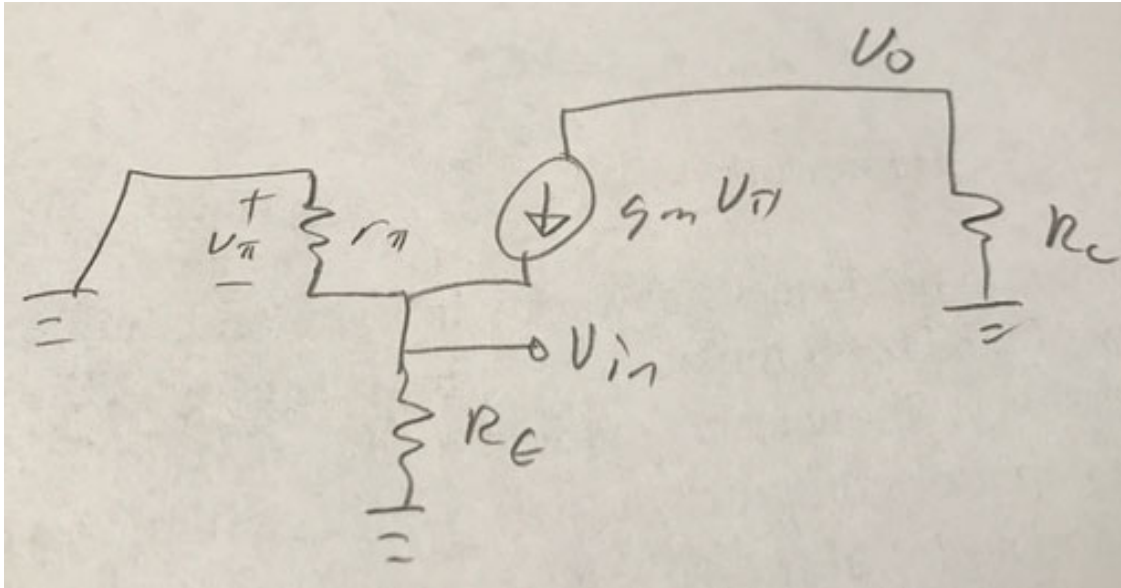 Vo
+
Vπ
−
rπ
gmVπ
Rc
Vin
RE